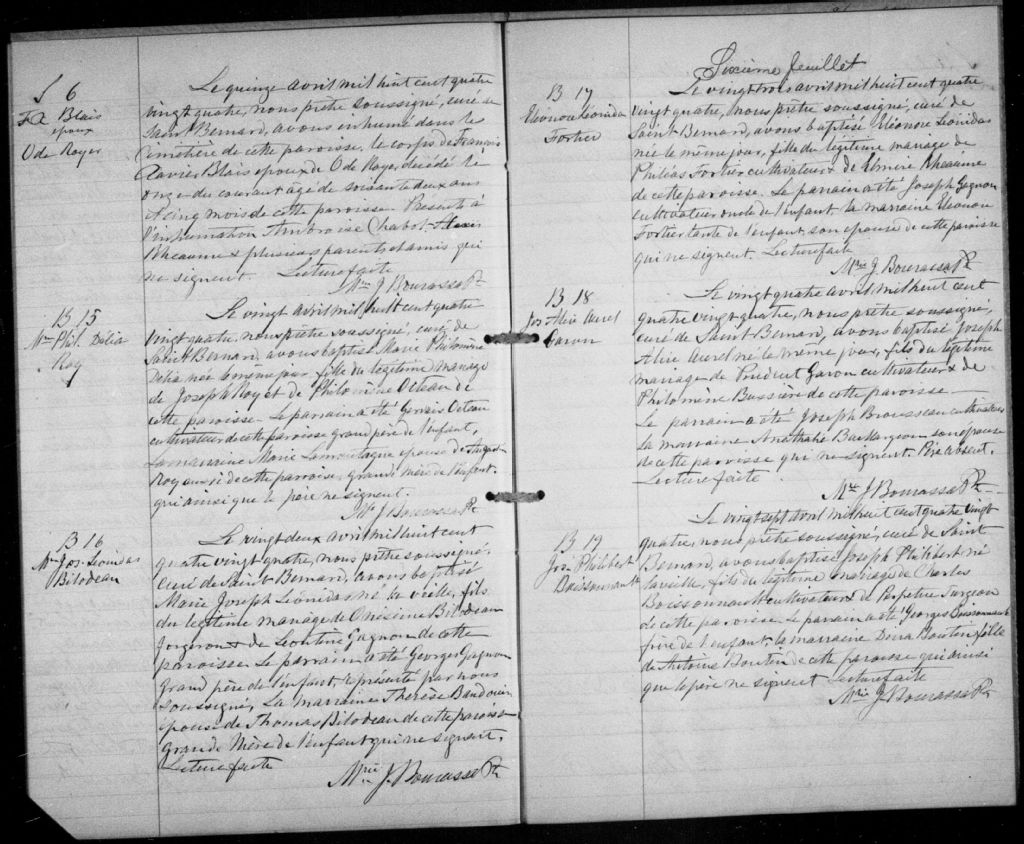 S 6
F.X Blais
époux
Ode Royer
Le quinze avril mil huit cent quatre
vingt quatre, nous prêtre soussigné, curé de
Saint Bernard, avons inhumé dans le
cimetière de cette paroisse, le corps de Francois
Xavier Blais époux de Ode Royer, décédé le
onze du courant âgé de soixante deux ans
et cinq mois de cette paroisse. Presents à
l'inhumation Ambroise Chabot, Alexis
Rheaume & plusieurs parents et amis qui
ne signent. Lecture faite
J Bourassa Ptre
B 15
Mie Phil. Délia
Roy
Le vingt avril mil huit cent quatre
vingt quatre, nous prêtre soussigné, curé de
Saint Bernard, avons baptisé Marie Philomène
Délia née le même jour fille du légitime mariage
de Joseph Roy et de Philomène Octeau de
cette paroisse. Le parrain a été Gervais Octeau
cultivateur de cette paroisse grand père de l'enfant,
La marraine Marie Lamontagne épouse de
Roy aussi de cette paroisse, grande mère de l'enfant,
qui ainsi que le père ne signent.
J Bourassa Ptre
B 16
Jos. Léonidas
Bilodeau
Le vingt deux avril mil huit cent
quatre vingt quatre, nous prêtre soussigné,
curé de Saint Bernard, avons baptisé
Marie Joseph Léonidas né la veille, fils
du légitime mariage de Onésime Bilodeau
forgeron & de Léontine Gagnon de cette
paroisse. Le parrain a été Georges Gagnon
grand père de l'enfant, représenté par nous
soussigné, La marraine Thérèse Baudoin
épouse de Thomas Bilodeau de cette paroisse
grande Mère de l'enfant qui ne signent.
Lecture faite
J. Bourassa Ptre
Sixième feuillet
B 17
Eléonore Léonida
Fortier
Le vingt trois avril mil huit cent quatre
vingt quatre, nous prêtre soussigné, curé de
Saint Bernard, avons baptisé Eléonore Léonidas
née le même jour, fille du légitime mariage de
Philéas Fortier cultivateur & de Elmire Rheaume
de cette paroisse. Le parrain a été Joseph Gagnon
cultivateur oncle de l'enfant la marraine Eléonore
Fortier tante de l'enfant son épouse de cette paroisse
qui ne signent. Lecture faite
J Bourassa Ptre
B 18
Jos Alie Aurel
Garon
Le vingt quatre avril mil huit cent
quatre vingt quatre, nous prêtre soussigné,
curé de Saint Bernard, avons baptisé Joseph
Alie Aurel né le même jour, fils du légitime
mariage de Prudent Garon cultivateur & de
Philomène Bussière de cette paroisse
Le parrain a été Joseph Brousseau cultivateur
la marraine son épouse
de cette paroisse qui ne signent. Père absent.
Lecture faite.
J Bourassa Ptre
B 19
Jos. Philibert
Boissonnault
Le vingt sept avril mil huit cent quatre vingt
quatre, nous prêtre soussigné, curé de Saint
Bernard, avons baptisé Joseph Philibert né
la veille, fils du légitime mariage de Charles
Boissonnault cultivateur & de Perpétue Turgeon
de cette paroisse. Le parrain a été Georges Boissonnault
frère de l'enfant, la marraine Dina Boutin fille
de Antoine Boutin de cette paroisse qui ainsi
que le père ne signent Lecture faite
J Bourassa Ptre